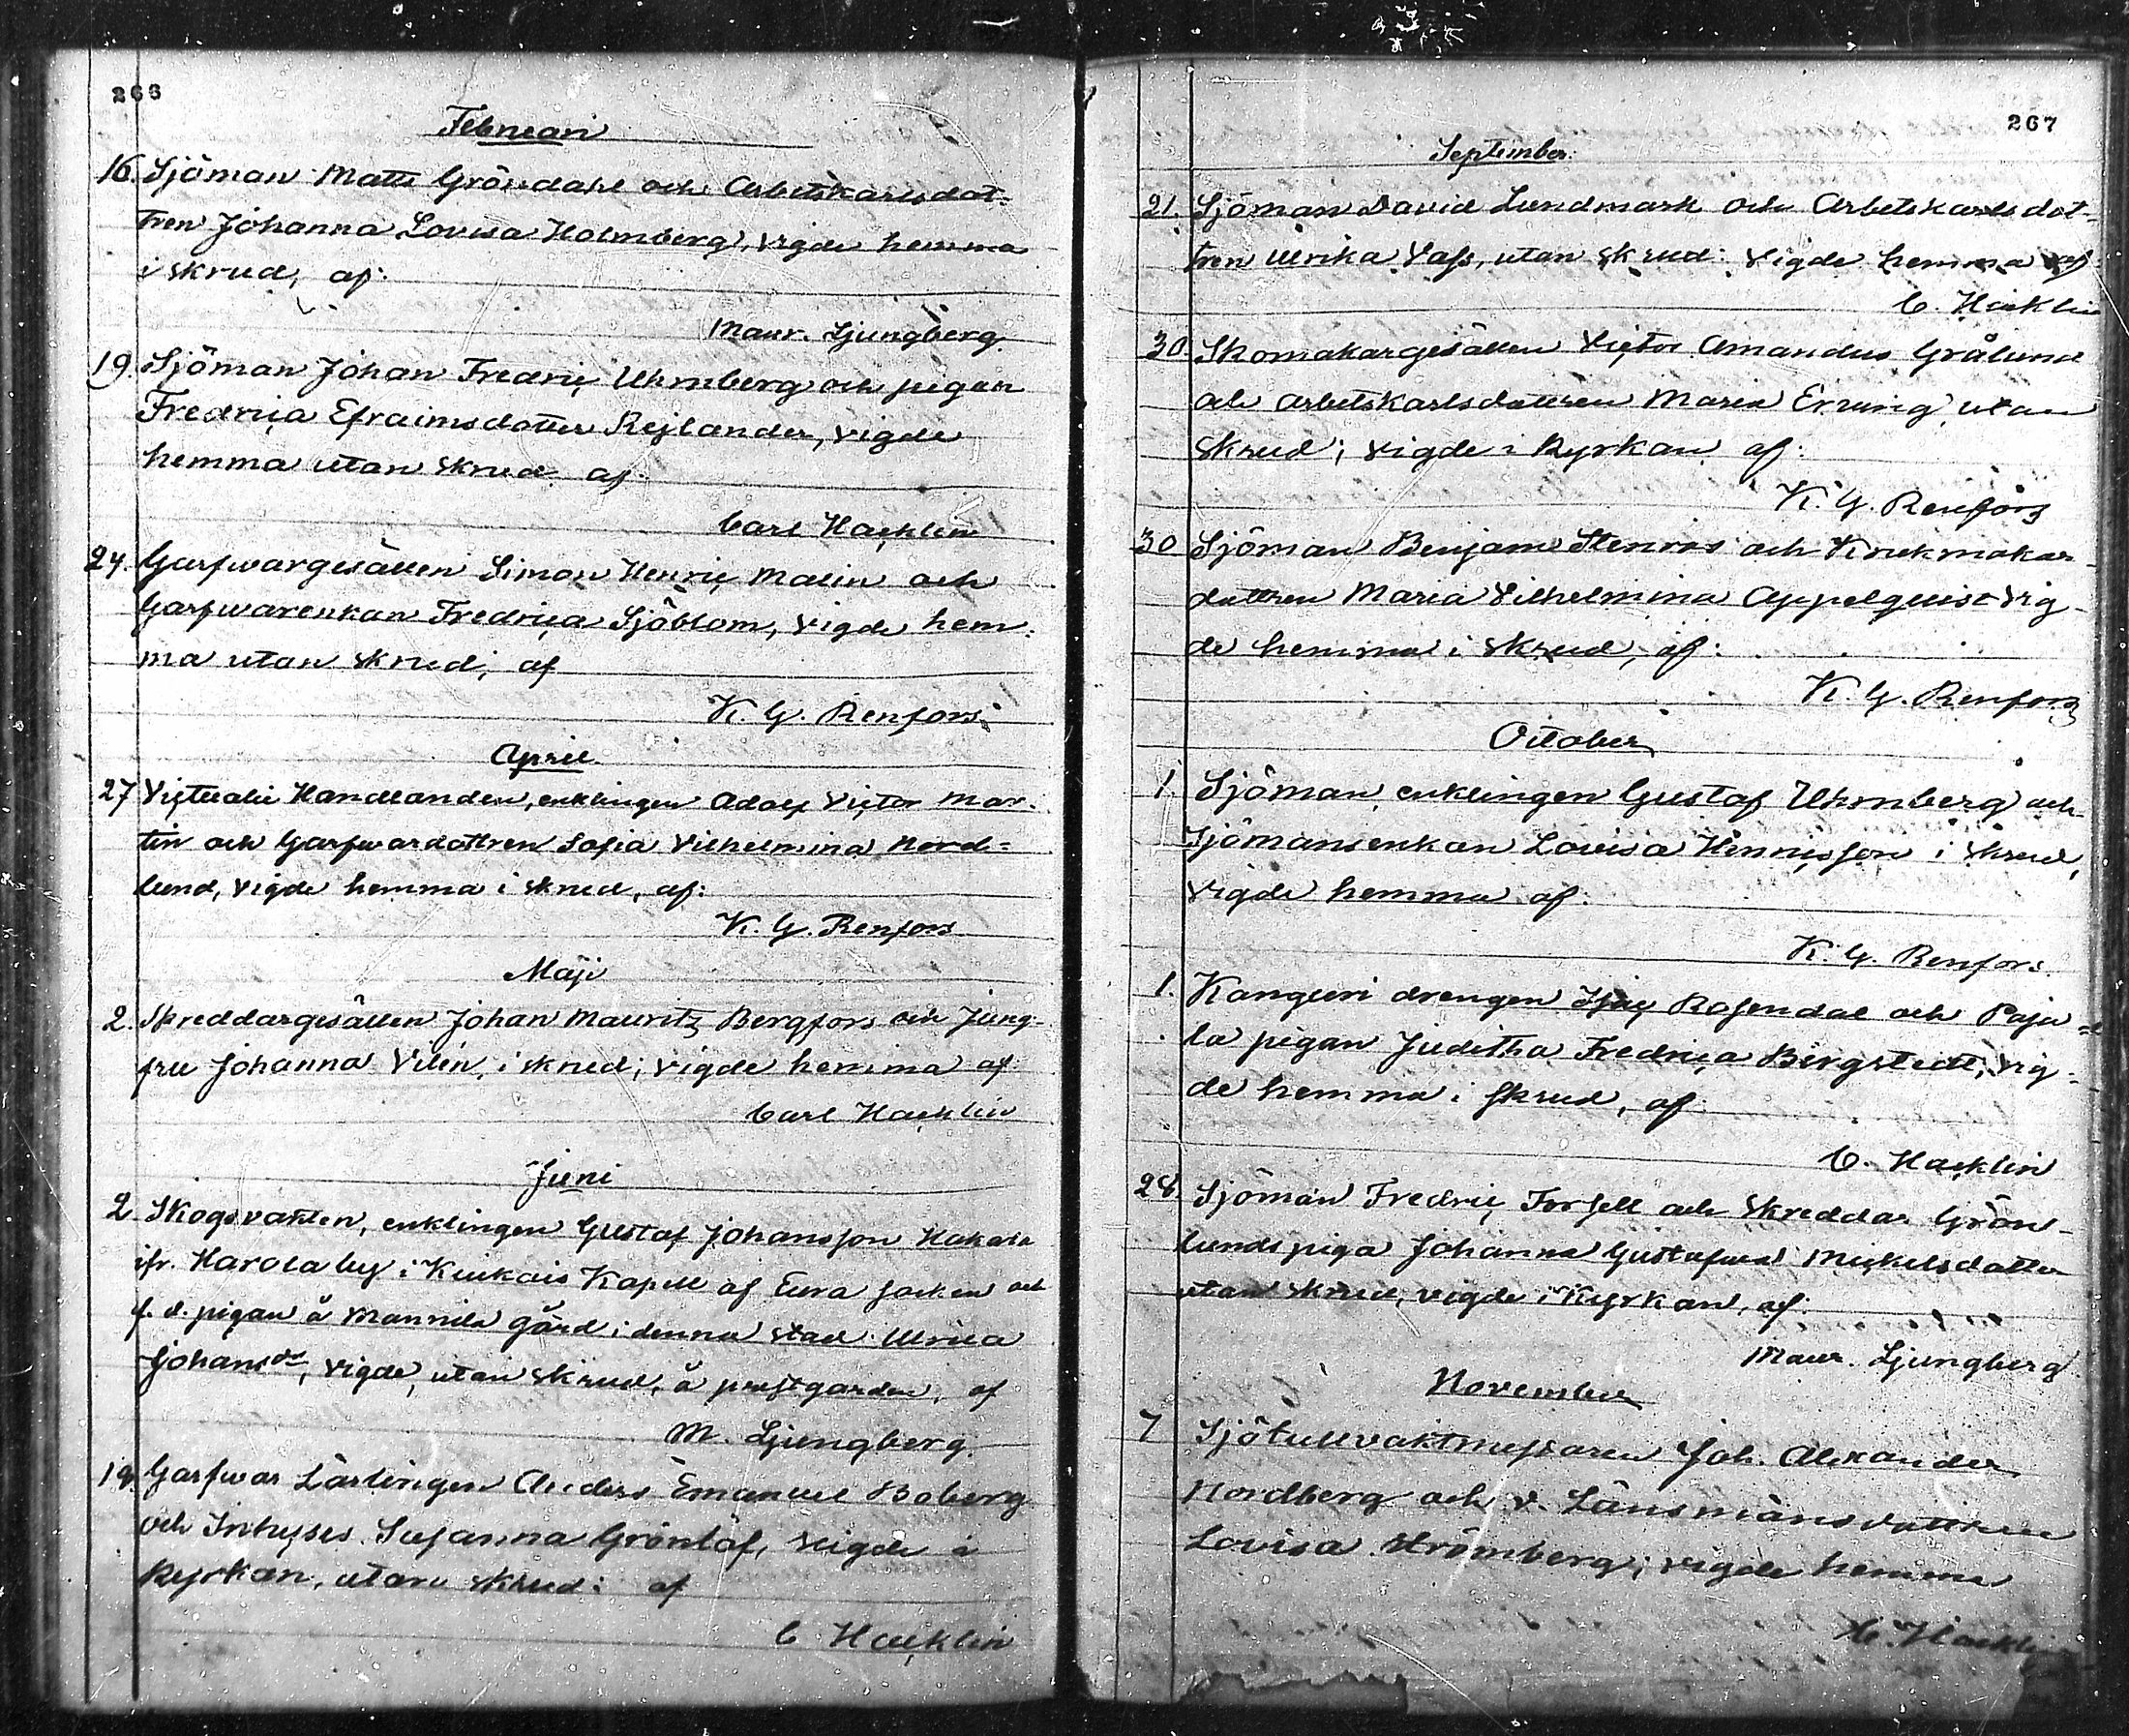 266
Februari
16. Sjöman Matts Gröndahl och Arbetskarlsdot=
tren Johanna Lovisa Holmberg, vigde hemma
i skrud, af:
Maur. Ljungberg.
19. Sjöman Johan Fredric Uhrnberg och pigan
Fredrica Efraimsdotter Rejlander, vigde
hemma utan skrud af:
Carl Hacklin
24. Garfwargesällen Simon Henric Malin och
Garfwarenkan Fredrica Sjöblom, vigde hem=
ma utan skrud; af
K. G. Renfors.
April.
27 Victualie Handlanden, enklingen Adolf Victor Mar=
tin och Garfwardottren Sofia Vilhelmina Nord=
lund, vigde hemma i skrud, af:
K. G. Renfors
Maji
2. Skreddargesällen Johan Mauritz Bergfors och Jung=
fru Johanna Vilén, i skrud; vigde hemma af
Carl Hacklin
Juni
2 Skogsvakten, enklingen Gustaf Johansson Hakala
ifr. Harola by i Kiukais Kapell af Eura socken och
f. d. pigan å Mannila gård i denna stad Ulrica
Johansdr, vigde, utan skrud, å prestgården, af
M. Ljungberg.
19. Garfwar Lärlingen Anders Emanuel Boberg
och Inhyses. Susanna Grönlöf, vigde i
kyrkan, utan skrud: af
C Hacklin
267
September.
21. Sjöman David Lundmark och Arbetskarlsdot=
tren Ulrika Vass, utan skrud: vigde hemma af
C. Hacklin
30. Skomakargesällen Victor Amandus Grålund
och arbetskarlsdottren Maria Erving utan
skrud; vigde i Kyrkan af:
K. G. Renfors
30 Sjöman Benjam Stenros och Krukmakar
dottren Maria Vilhelmina Appelquist vig-
de hemma i skrud, af:
K. G. Renfors
October
1. Sjöman, enklingen Gustaf Uhrnberg och
Sjömansenkan Lovisa Henricsson i skrud,
vigde hemma af:
K. G. Renfors.
1. Kangeri drengen Isac Rosendal och Paju=
la pigan Juditha Fredrica Bergstedt, vig=
de hemma i skrud, af
C. Hacklin
28. Sjöman Fredric Forsell och Skreddar Grön-
lunds piga Johanna Gustafwa Mickelsdotter
utan skrud, vigde i Kyrkan, af:
Maur. Ljungberg
November
7 Sjötullvaktmesaren Joh. Alexander
Nordberg och v. Länsmänsdottren
Lovisa Strömberg; vigde hemma
C. Hacklin